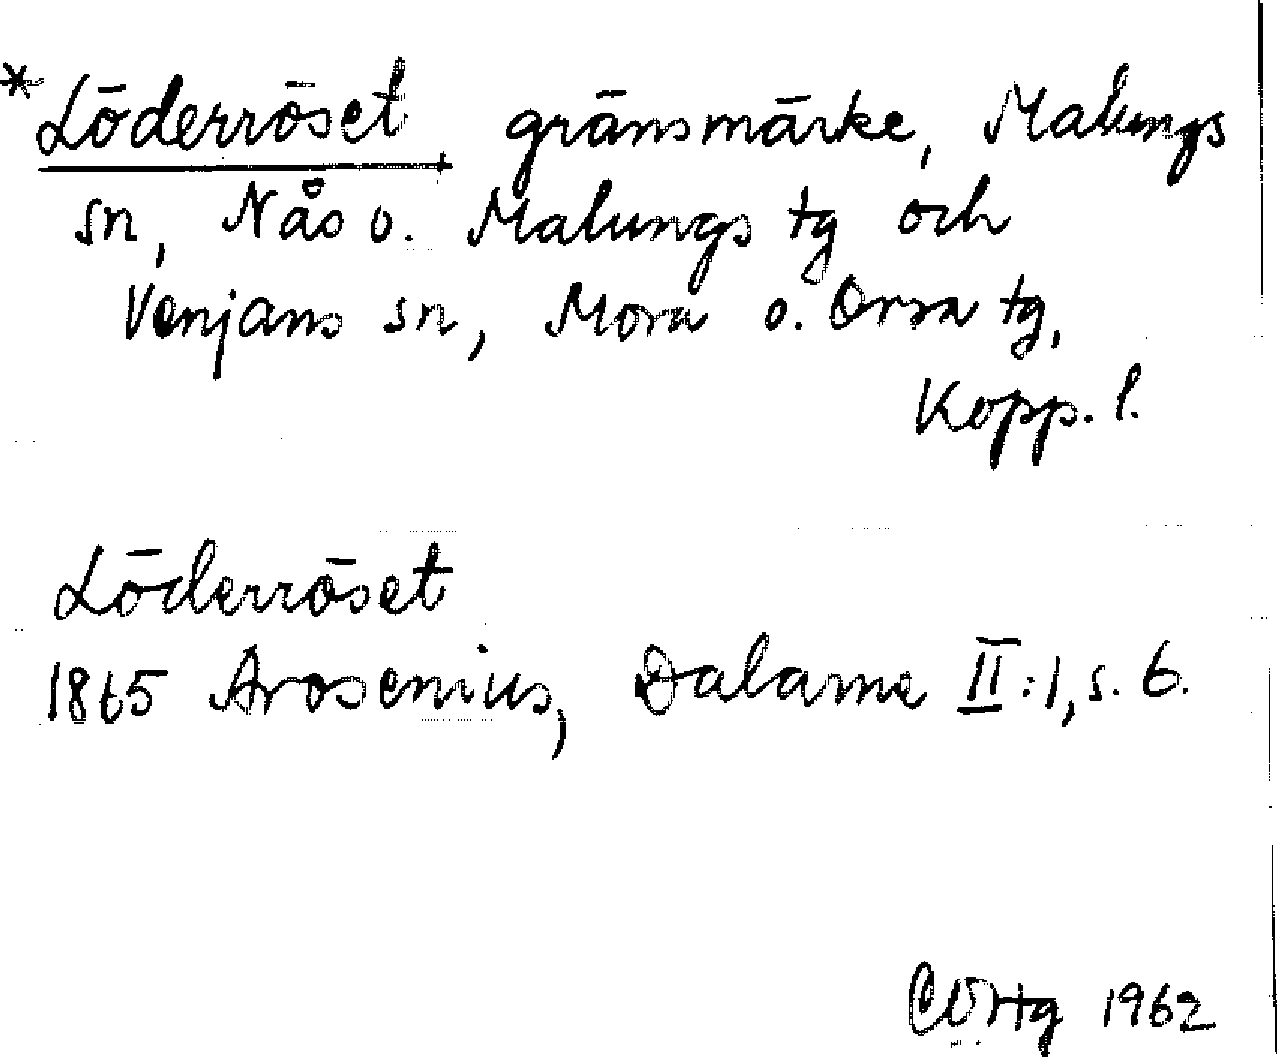 *Löderröset gränsmärke, Malungs
sn, Nås o. Malungs tg och
Venjans sn, Mora o. Orsa tg,
Kopp. l.
Löderröset
1865 Arosenius, Dalarne II:1, s. 6.
1962